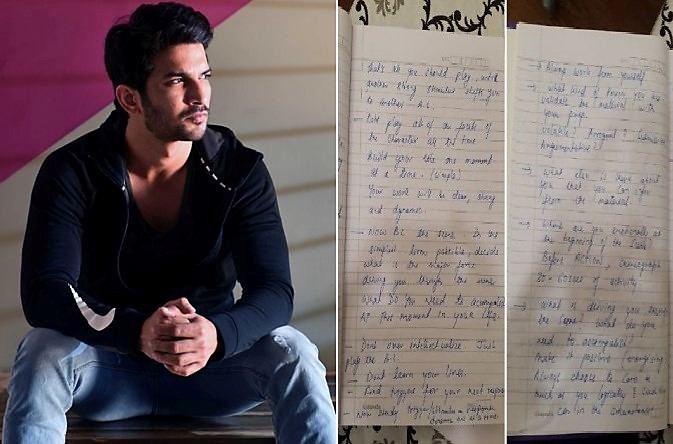 That's all you should play, until
another strong stimulus takes you
to another B.C.
- Dont play all of the facets of
the character all the time
Build your role one moment
at a time. (Simple)
Your work will be clean, strong
and dynamic.
- Now B.C. the scene. In the
simplest form possible, decide
what is the major force
driving you through the scene
What do you need to accomplish
at this moment in your life.
Dont over intellectualise. Just
play the B.C.
- Dont learn your lines.
- Find triggers for your next
- Now study
→ Always work from yourself
→ What kind of person you are
validate the material with
your
volatile? Arrogant?
Argumentative?
→ What else is there about
you that you can
from the material.
→ Where are you emotionally at
the beginning of the scene?
Before Action,
of activity
→ What is driving you through
the scene? What do you
need to accomplish?
Make it positive
Always choose to care as
much as you logically
can in the circumstances